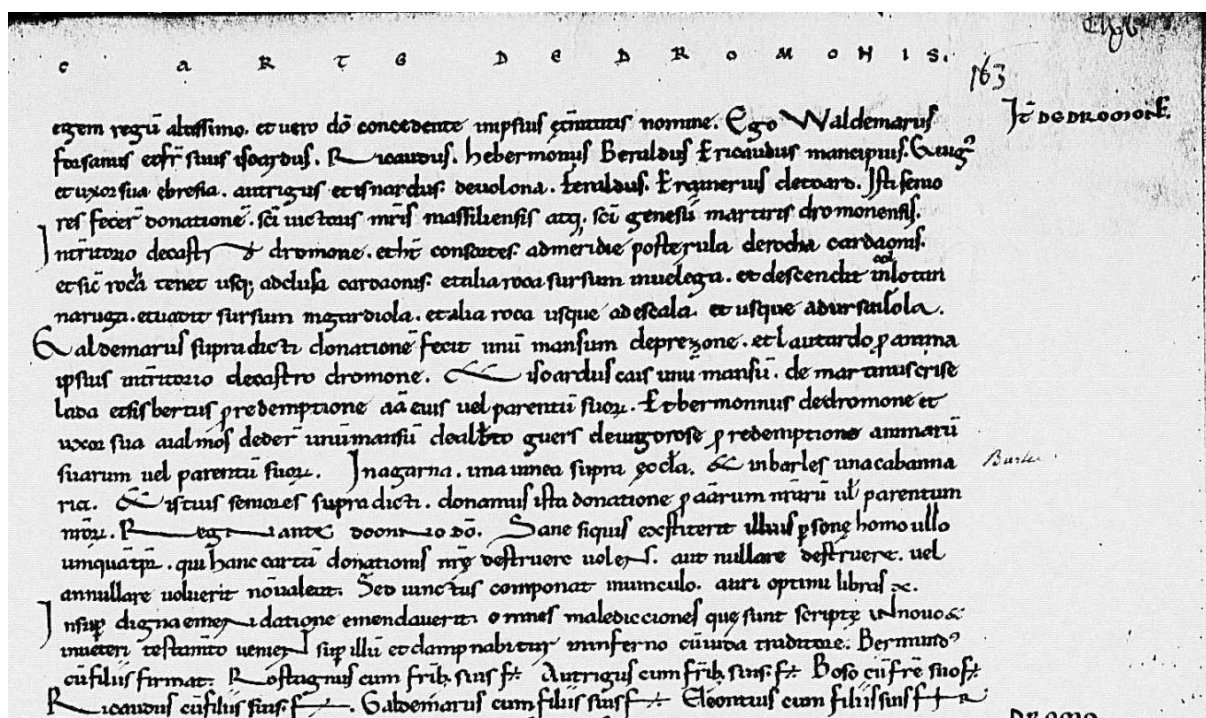 CARTE DE DROMONIS.
163
egem regū altissimo. et uero dō concedente inipsius trinitatis nomine. Ego Waldemarus
It DE DROMONE
forsanus et fr̄ suus isoardus. Ricaudus. hebermonus Beraldus Ericaudus mancipius.
et uxor sua ebresia. autrigus et isnardus. deuolona. Feraldus. Erainerius cletoard. Isti senio
res fecer̄ donationē. sc̄i uictoris mr̄is massiliensis atq; sc̄i genesii martiris dromonensis.
In tr̄ritorio decastro dromone. et hn̄t consortes. admeridie posterula derocha cardaonis.
et sic rocha tenet usq; adclusa cardaonis. et alia roca sursum inuelega. et descendit inlotan
naruga. et uadit sursum ingardiola. et alia roca usque adescala. et usque adursairola.
Galdemarus supradicti donationē fecit unū mansum deprezone. et lautardo p anima
ipsius intr̄ritorio decastro dromone. Et isoardus cais unū mansū. de martinus crise
lada et fisbertus p redemptione aā eius uel parentū suoꝝ. Et bermonnus dedromone et
uxor sua aialmos deder̄ unū mansū dealbto guers deungorose p redemptione animarū
suarum uel parentū suoꝝ. Inagarna. una uinea supra
Barles
&inbarles unacabanna
ria. & istius seniores supradicti. donamus ista donatione p aārum nr̄arū ul̄ parentum
nr̄oꝝ. Regnante domino dō. Sane siquis exstiterit illius psone homo ullo
umquā tp̄r. qui hanc cartā donationis nr̄e destruere uolens. aut nullare destruere. uel
annullare uoluerit nōualeat. Sed uinctus componat inuinculo. auri optimi libras xc.
Insup digna emendatione emendauerit. omnes malediccciones que sunt scripte in nouo &
inueteri testamto ueniens sup illū et clampnabitur ininferno cū iuda traditore. Bermund9
cū filiis firmat. Rostagnus cum frib; suis f. Autrigus cum frib; suis. f. Boso cū fr̄e suo f.
Ricaudus cū filiis suis. f. Galdemarus cum filiis suis f. Eleontius cum filiis suis f
DROMO